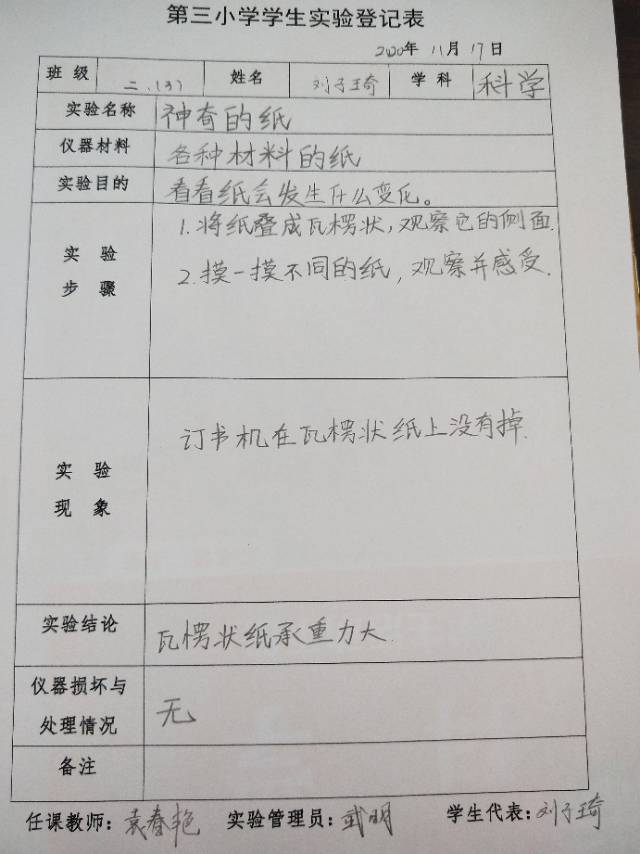 第三小学学生实验登记表
2020年 11月 17日
班 级 二.(3) 姓名 刘子琦 学 科 科学
实验名称 神奇的纸
仪器材料 各种材料的纸
实验目的 看看纸会发生什么变化。
实 验
步 骤
1.将纸叠成瓦楞状,观察它的侧面.
2.摸一摸不同的纸,观察并感受.
实 验
现 象
订书机在瓦楞状纸上没有掉.
实验结论 瓦楞状纸承重力大.
仪器损坏与
处理情况
无
备注
任课教师: 袁春艳 实验管理员: 武明 学生代表: 刘子琦